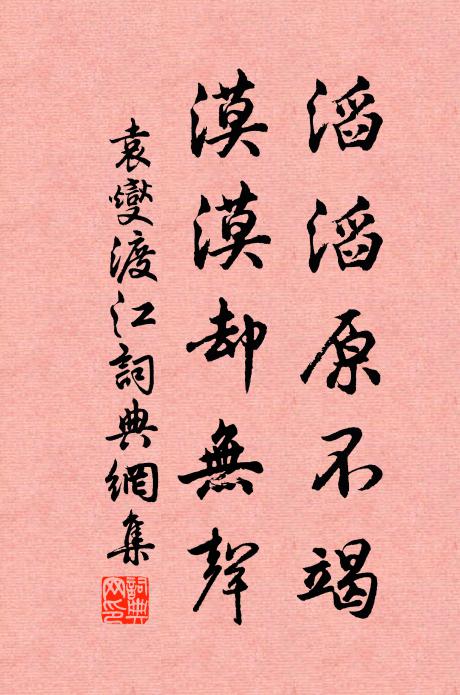 滔滔原不竭
漠漠却無聲
袁燮渡江詞典網集
詞典網印